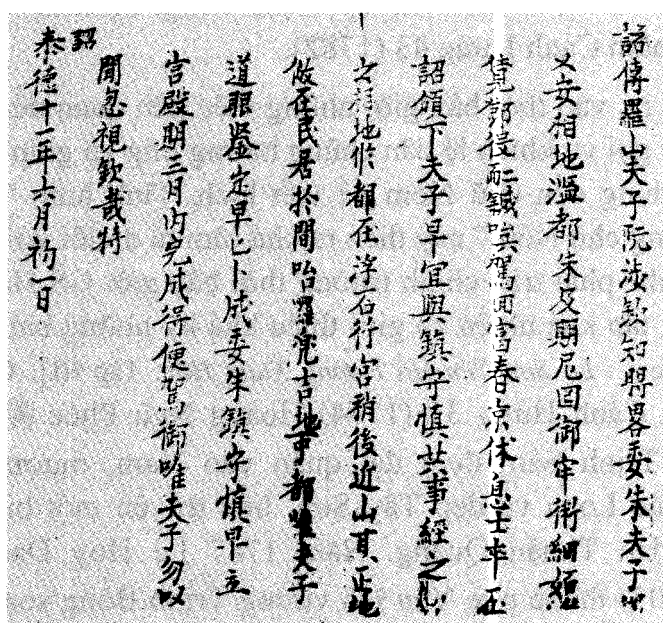 詔傳羅山夫子阮涉欽知𣈜畧委朱夫子
乂安相地溋都朱及期尼回御牢衛細
駕回富春京休息士卒丕
詔頒下夫子早宜與鎮守慎共事經之
之相地作都在浮石行宮稍後近山其正地
倣在民居於間咍羅兜吉地可都唯夫子
道眼鑒定早早卜成委朱鎮守慎早立
宮殿期三月内完成得便駕御唯夫子勿以
閒忽視欽哉特
詔
泰德十一年六月初一日